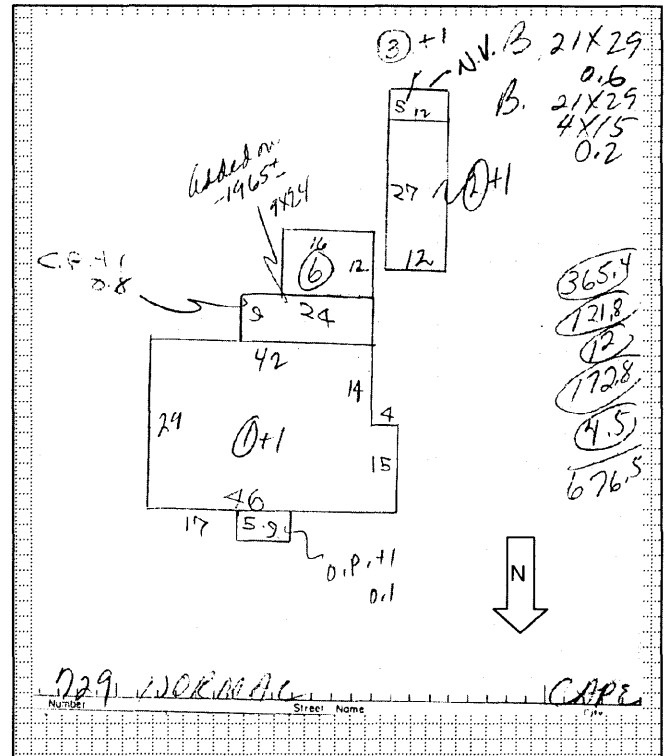 ③ +1
N.V. B. 21X29
0.6
B. 21X29
4X15
0.2
5 12
27 ② +1
12
added on
-1965±
9X24
16
⑥ 12
C.F.A 1
0.8
9 24
42
14
29
① +1
4
15
46
17
5 9
O.P. +1
0.1
365.4
121.8
12
172.8
4.5
676.5
N
729 NORMAL CAPE
Number Street Name City